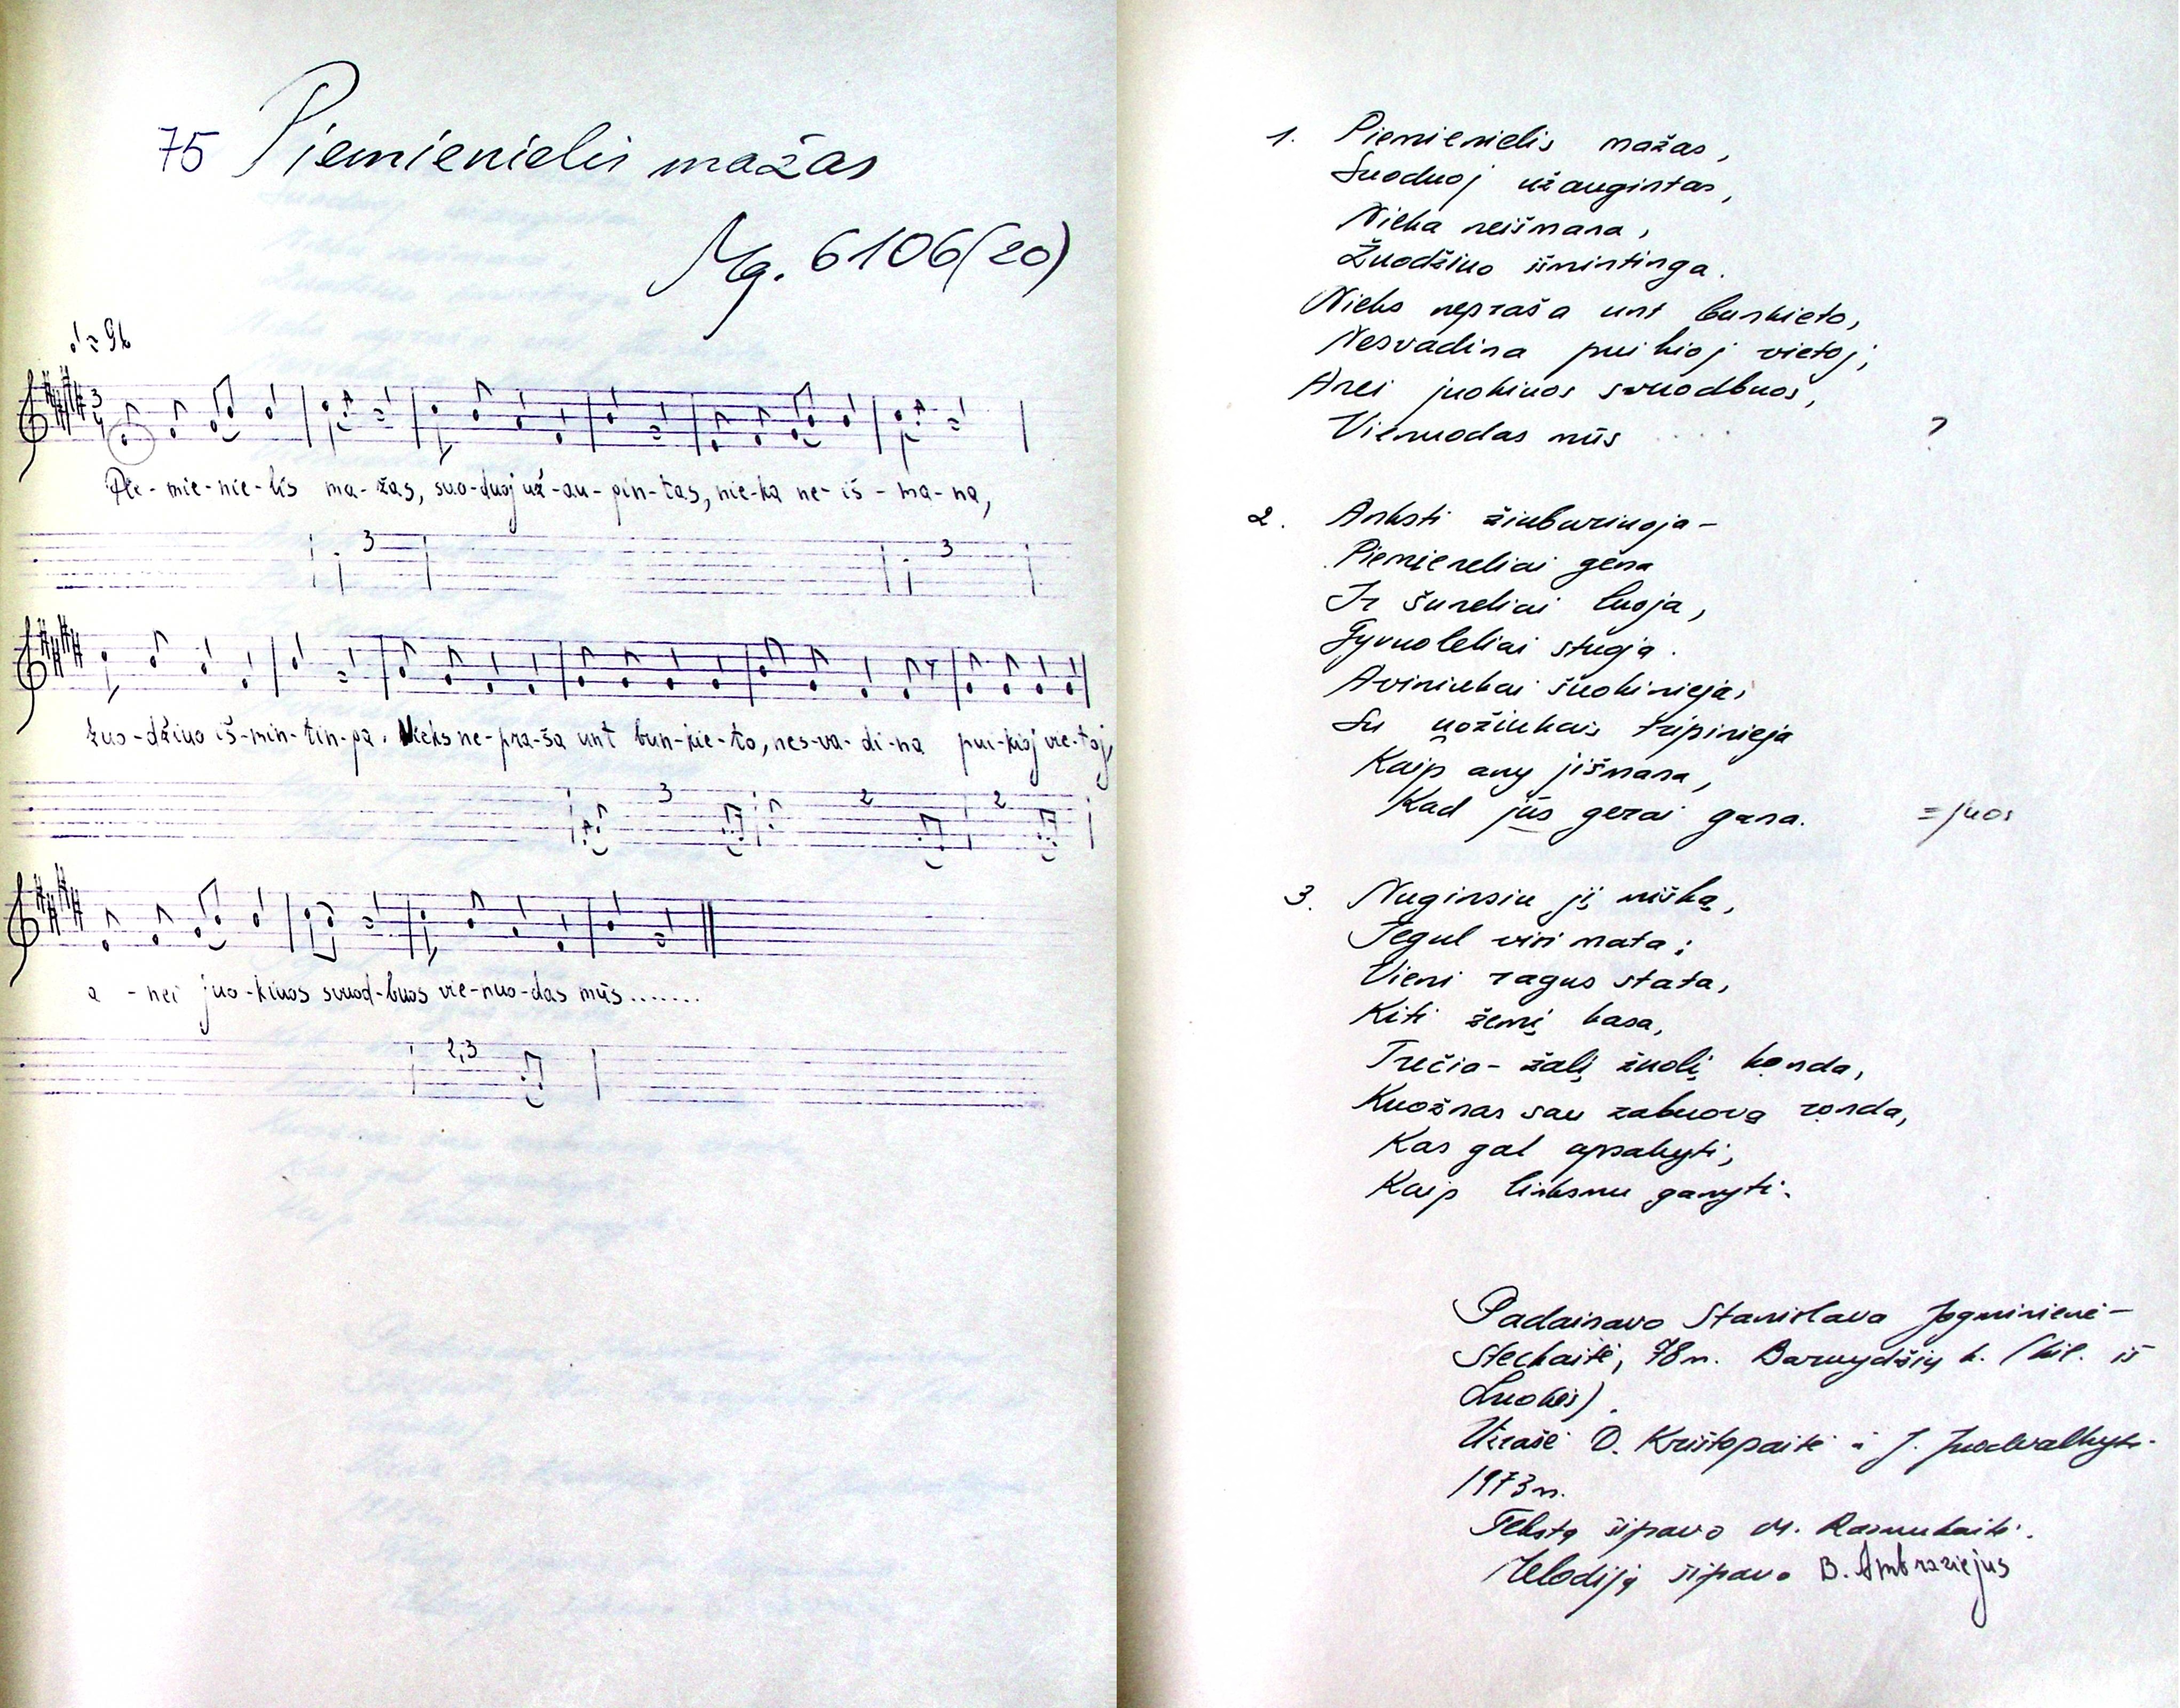 75 Piemienielis mažas
Mg. 6106(20)
♩ = 96
Pie-mie-nie-lis ma-žas, suo-duoj už-au-gin-tas, nie-ka ne-iš-ma-na,
3 3
žuo-džiuo iš-min-tin-ga. Nieks ne-pra-ša unt bun-kie-to, nes-va-di-na pui-kioj vie-toj,
3 2 2
a-nei juo-kiuos svuod-buos vie-nuo-das mūs.......
2,3
1. Piemienielis mažas,
Suoduoj užaugintas,
Nieka neišmana,
Žuodžiuo išmintinga.
Nieks nepraša unt bunkieto,
Nesvadina puikioj vietoj;
Anei juokiuos svuodbuos,
Vienuodas mūs ..... ?
2. Anksti žiuburiuoja –
Piemieneliai gena
Ir šuneliai luoja,
Gyvuoleliai stugja.
Aviniukai šuokinieja,
Su uožiukais tripinieja
Kaip any jišmana,
Kad jūs gerai gana. = juos
3. Nuginsiu jį mišką,
Tegul visi mata;
Vieni ragus stata,
Kiti žemį kasa,
Trečia – žalį žuolį konda,
Kuožnas sau zabuovą ronda,
Kas gal apsakyti,
Kaip linksmu ganyti.
Padainavo Stanislava Jogminienė –
Steckaitė, 78 m. Barvydžių k. (kil. iš
Luokės).
Užrašė D. Krištopaitė ir J. Juodvalkytė
1973 m.
Tekstą šifravo M. Razmukaitė.
Melodiją šifravo B. Ambraziejus